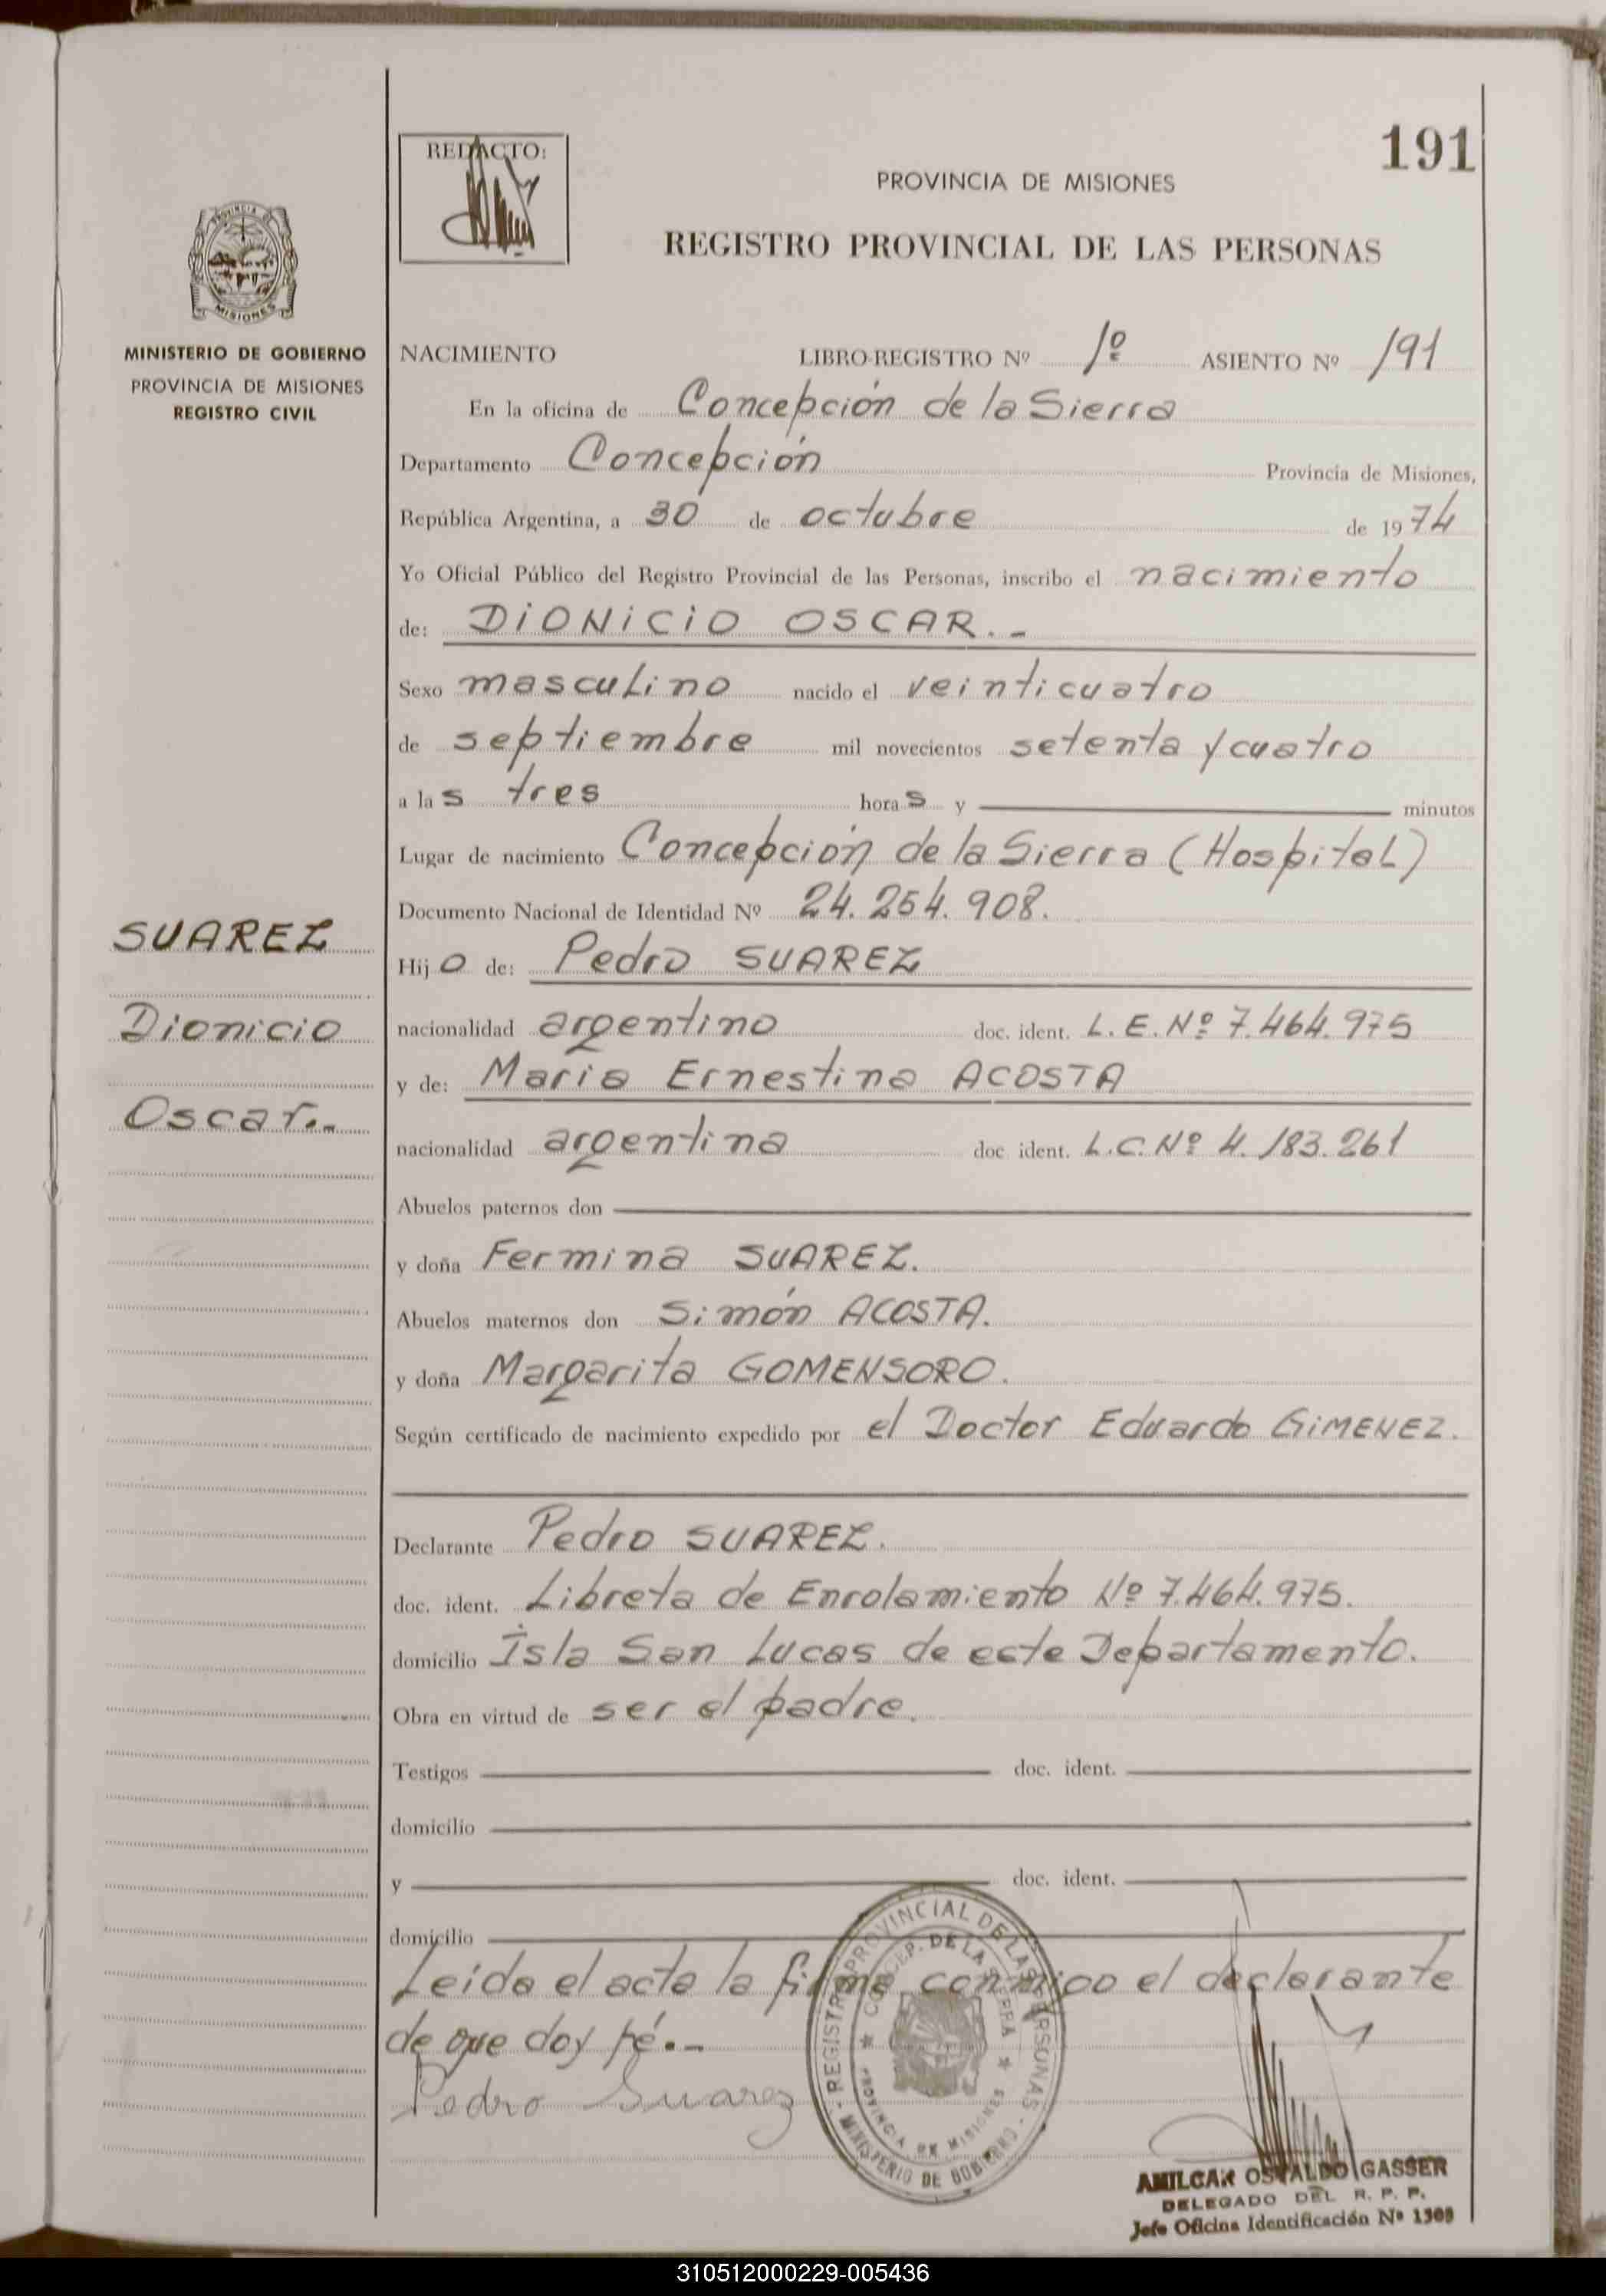 191
REDACTO:
PROVINCIA DE MISIONES
REGISTRO PROVINCIAL DE LAS PERSONAS
MISIONES
MINISTERIO DE GOBIERNO
PROVINCIA DE MISIONES
REGISTRO CIVIL
NACIMIENTO LIBRO-REGISTRO Nº 1º ASIENTO Nº 191
En la oficina de Concepción de la Sierra
Departamento Concepción Provincia de Misiones,
República Argentina, a 30 de octubre de 1974
Yo Oficial Público del Registro Provincial de las Personas, inscribo el nacimiento
de: DIONICIO OSCAR.-
Sexo masculino nacido el veinticuatro
de septiembre mil novecientos setenta y cuatro
a las tres horas y minutos
Lugar de nacimiento Concepción de la Sierra (Hospital)
Documento Nacional de Identidad Nº 24.264.908.
SUAREZ
Dionicio
Oscar.-
Hijo de: Pedro SUAREZ
nacionalidad argentino doc. ident. L.E.Nº 7.464.975
y de: Maria Ernestina ACOSTA
nacionalidad argentina doc ident. L.C.Nº 4.183.261
Abuelos paternos don
y doña Fermina SUAREZ.
Abuelos maternos don Simón ACOSTA.
y doña Margarita GOMENSORO.
Según certificado de nacimiento expedido por el Doctor Eduardo GIMENEZ.
Declarante Pedro SUAREZ.
doc. ident. Libreta de Enrolamiento Nº 7.464.975.
domicilio Isla San Lucas de este Departamento.
Obra en virtud de ser el padre.
Testigos doc. ident.
domicilio
y doc. ident.
domicilio
Leida el acta la firma conmigo el declarante
de que doy fé.-
Pedro Suarez
REGISTRO PROVINCIAL DE LAS PERSONAS
MINISTERIO DE GOBIERNO
CONCEP. DE LA SIERRA
PROVINCIA DE MISIONES
AMILCAR OSVALDO GASSER
DELEGADO DEL R. P. P.
Jefe Oficina Identificación Nº 1309
310512000229-005436